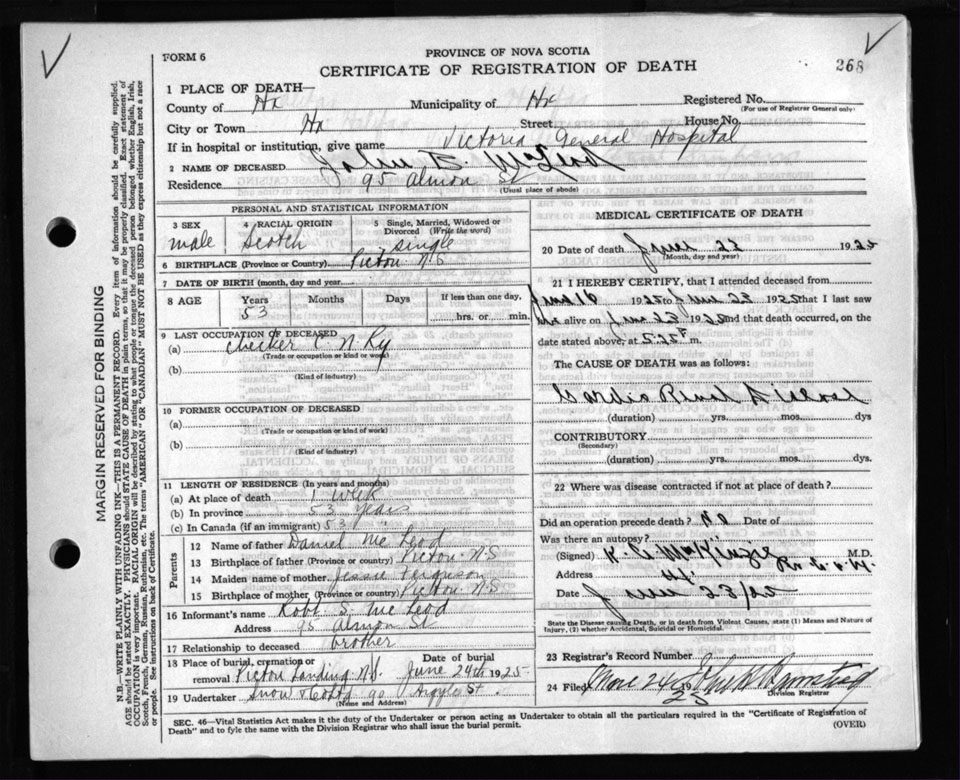 FORM 6
PROVINCE OF NOVA SCOTIA
CERTIFICATE OF REGISTRATION OF DEATH
268
1 PLACE OF DEATH—
County of Hx Municipality of Hx Registered No.
(For use of Registrar General only)
City or Town Hx Street House No.
If in hospital or institution, give name Victoria General Hospital
2 NAME OF DECEASED John D. McLeod
Residence 95 Almon St
(Usual place of abode)
PERSONAL AND STATISTICAL INFORMATION
3 SEX 4 RACIAL ORIGIN 5 Single, Married, Widowed or Divorced (Write the word)
male Scotch single
6 BIRTHPLACE (Province or Country) Pictou N S
7 DATE OF BIRTH (month, day and year)
8 AGE Years Months Days If less than one day,
53 hrs. or min.
9 LAST OCCUPATION OF DECEASED
(a) Checker C N Ry
(Trade or occupation or kind of work)
(b)
(Kind of industry)
10 FORMER OCCUPATION OF DECEASED
(a)
(Trade or occupation or kind of work)
(b)
(Kind of industry)
11 LENGTH OF RESIDENCE (In years and months)
(a) At place of death 1 week
(b) In province 53 years
(c) In Canada (if an immigrant) 53 "
Parents
12 Name of father Daniel Mc Leod
13 Birthplace of father (Province or country) Pictou N.S
14 Maiden name of mother Jessie Ferguson
15 Birthplace of mother (Province or country) Pictou N.S
16 Informant's name Robt S. Mc Leod
Address 95 Almon St
17 Relationship to deceased brother
18 Place of burial, cremation or removal Pictou Landing N.S. Date of burial June 24th 1925
19 Undertaker Snow & Co Ltd 90 Argyle St.
(Name and Address)
MEDICAL CERTIFICATE OF DEATH
20 Date of death June 23 1925
(Month, day and year)
21 I HEREBY CERTIFY, that I attended deceased from
June 16 1925 to June 23 1925 that I last saw
him alive on June 23 1925 and that death occurred, on the
date stated above, at 5.25 P m.
The CAUSE OF DEATH was as follows:
Cardio Renal Disease
(duration) yrs. mos. dys
CONTRIBUTORY
(Secondary)
(duration) yrs. mos. dys.
22 Where was disease contracted if not at place of death?
Did an operation precede death? No Date of
Was there an autopsy?
(Signed) McKinzie M.D.
Address Hx
Date June 23/25
State the Disease causing Death, or in death from Violent Causes, state (1) Means and Nature of Injury, (2) whether Accidental, Suicidal or Homicidal.
23 Registrar's Record Number
24 Filed June 24
Division Registrar
SEC. 46—Vital Statistics Act makes it the duty of the Undertaker or person acting as Undertaker to obtain all the particulars required in the "Certificate of Registration of
Death" and to fyle the same with the Division Registrar who shall issue the burial permit. (OVER)
MARGIN RESERVED FOR BINDING
N.B.—WRITE PLAINLY WITH UNFADING INK—THIS IS A PERMANENT RECORD. Every item of information should be carefully supplied.
AGE should be stated EXACTLY. PHYSICIANS should STATE CAUSE OF DEATH in plain terms, so that it may be properly classified. Exact statement of
OCCUPATION is very important. RACIAL ORIGIN will be described by stating to what people or tongue the deceased person belonged whether English, Irish,
Scotch, French, German, Russian, Ruthenian, etc. The terms "AMERICAN" or "CANADIAN" MUST NOT BE USED as they express citizenship but not a race
or people. See instructions on back of Certificate.